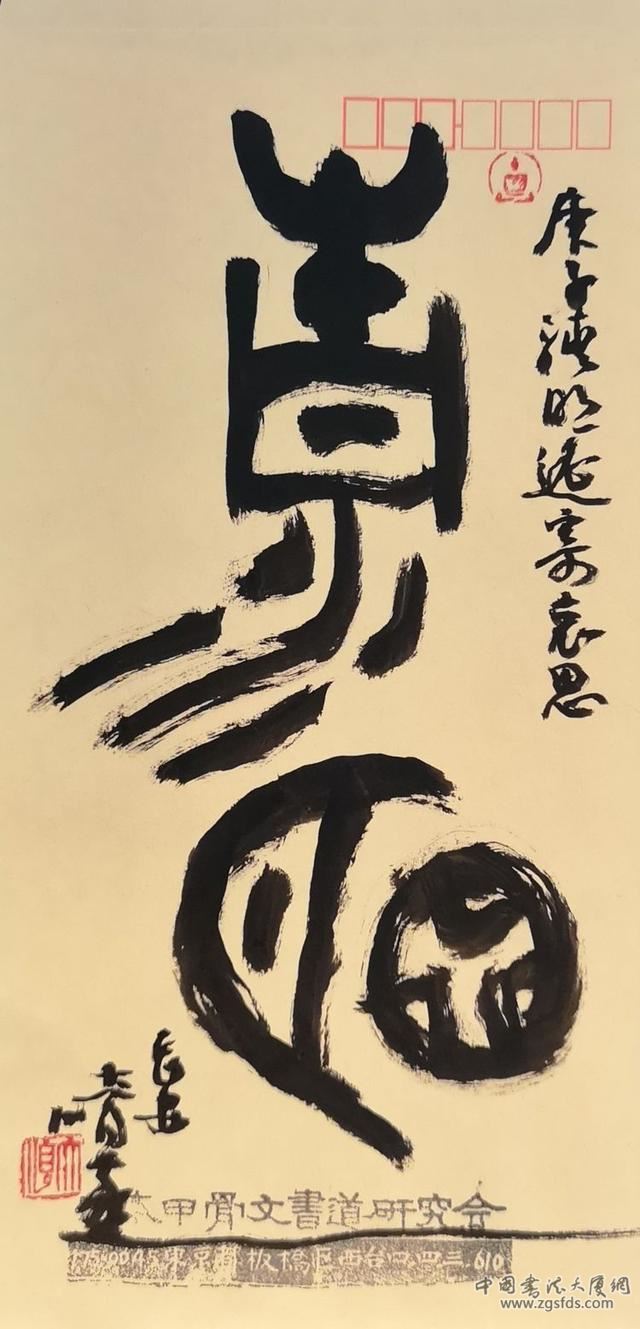 庚子清明遥寄哀思
清明
长安
本甲骨文書道研究会
東京都板橋区西台
中國書法大厦網
www.zgsfds.com